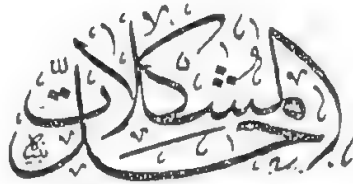 حل المشكلات